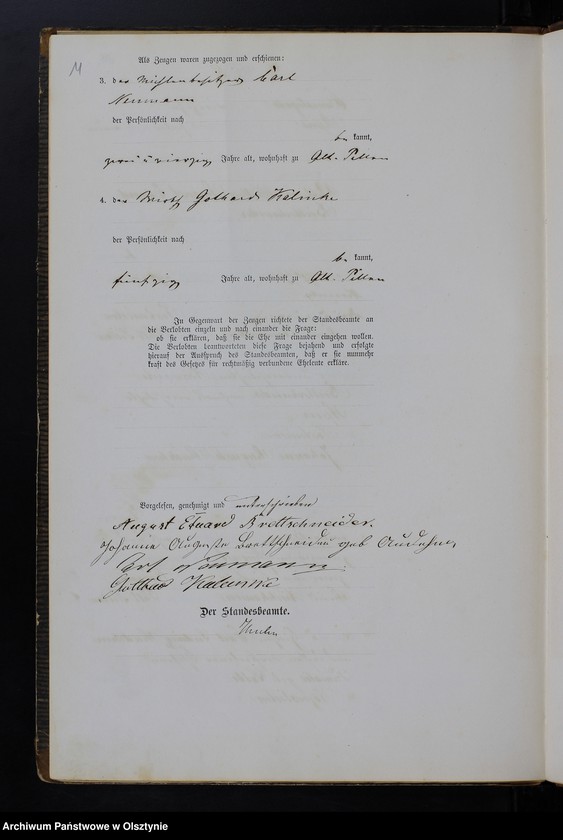 11
Als Zeugen waren zugezogen und erschienen:
3. der Mühlenbesitzer Carl
Neumann
der Persönlichkeit nach
be kannt,
zwei u vierzig Jahre alt, wohnhaft zu Alt-Pillau
4. der Wirth Gothard Kalinke
der Persönlichkeit nach
be kannt,
fünfzig Jahre alt, wohnhaft zu Alt-Pillau
In Gegenwart der Zeugen richtete der Standesbeamte an
die Verlobten einzeln und nach einander die Frage:
ob sie erklären, daß sie die Ehe mit einander eingehen wollen.
Die Verlobten beantworteten diese Frage bejahend und erfolgte
hierauf der Ausspruch des Standesbeamten, daß er sie nunmehr
kraft des Gesetzes für rechtmäßig verbundene Eheleute erkläre.
Vorgelesen, genehmigt und unterschrieben
August Eduard Brettschneider.
Johanne Auguste Brettschneider geb
Carl Neumann
Gotthard
Der Standesbeamte.
Archiwum Państwowe w Olsztynie